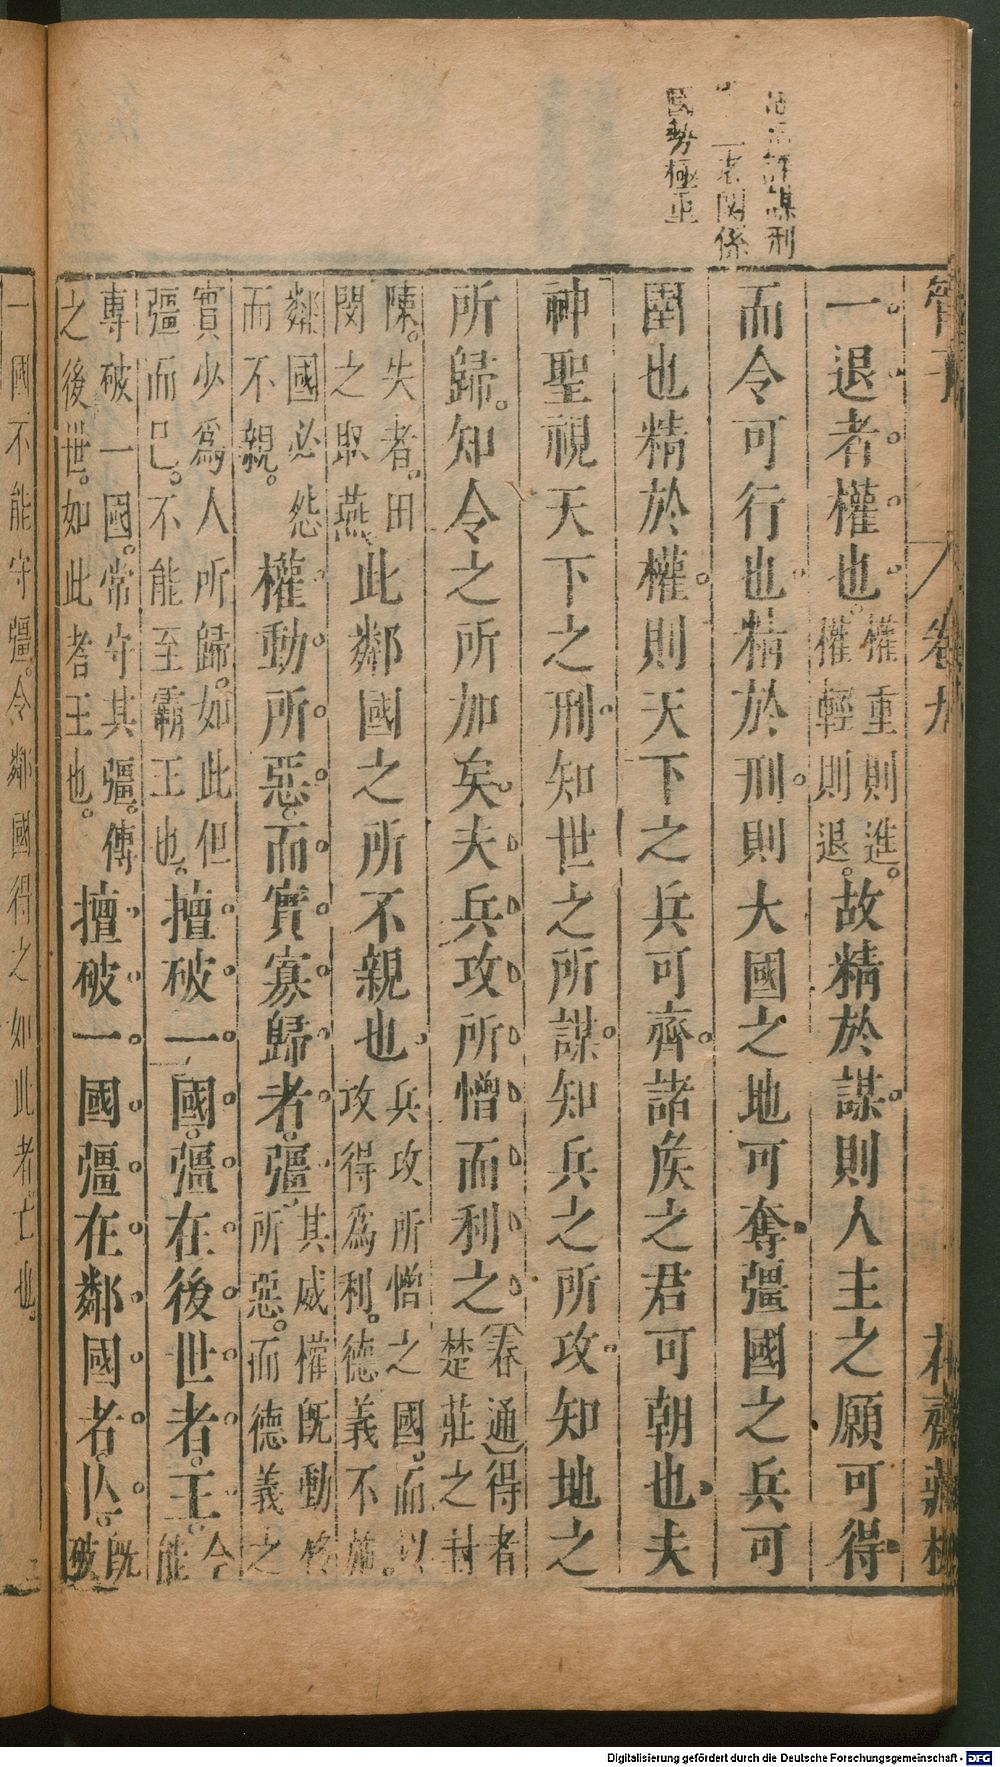 謀刑
一者關係
國勢極重
管子　卷九　花齋藏板
一退者權也權重則進權輕則退故精於謀則人主之願可得
而令可行也精於刑則大國之地可奪彊國之兵可
圉也精於權則天下之兵可齊諸侯之君可朝也夫
神聖視天下之刑知世之所謀知兵之所攻知地之
所歸知令之所加矣夫兵攻所憎而利之(春通)得者楚莊之封
陳失者田閔之取燕此鄰國之所不親也兵攻所憎之國而以攻得為利德義不施
鄰國必怨而不親權動所惡而實寡歸者彊其威權既動所惡而德義之
實少為人所歸如此但彊而已不能至霸王也擅破一國彊在後世者王令能
專破一國常守其彊傳之後世如此者王也擅破一國彊在鄰國者亾既破
一國不能守彊令鄰國得之如此者亡也
Digitalisierung gefördert durch die Deutsche Forschungsgemeinschaft - DFG